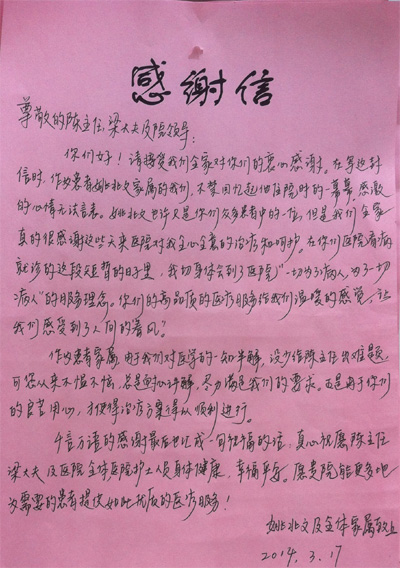 感谢信
尊敬的陈主任、梁大夫及院领导：
你们好！请接受我们全家对你们的衷心感谢。在写这封
信时，作为患者姚北文家属的我们，不禁回忆起他住院时的一幕幕，感激
的心情无以言表。姚北文也许只是你们众多患者中的一位，但是我们全家
真的很感谢这些天来医院对我全心全意的治疗和呵护。在你们医院看病
就诊的这段短暂的日子里，我切身体会到了医院"一切为了病人，为了一切
病人"的服务理念。你们的高品质的医疗服务给我们温暖的感觉，让
我们感受到了人间的春风？
作为患者家属，由于我们对医学的一知半解，没少给陈主任出难题，
可您从来不愠不恼，总是耐心讲解，尽力满足我们的要求。正是由于你们
的良苦用心，才使得治疗方案得以顺利进行。
千言万语的感谢最后也汇成一句祝福的话，真心祝愿陈主任
梁大夫及医院全体医院护士人员身体健康，幸福平安。愿贵院能更多地
为需要的患者提供如此优质的医疗服务！
姚北文及全体家属敬上
2014.3.17